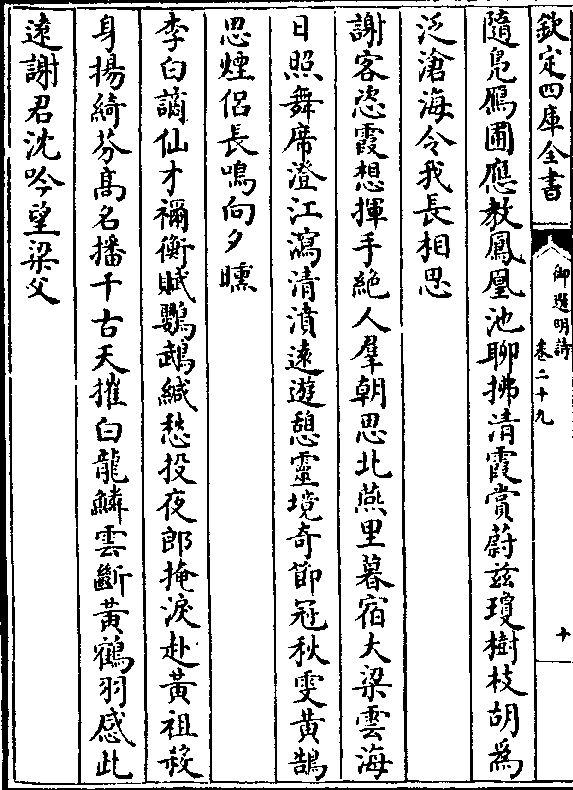 欽定四庫全書
御選明詩
卷二十九
十
隨鳬鴈圃應教鳳凰池聊拂清霞賞蔚兹瓊樹枝胡為
泛滄海令我長相思
謝客恣霞想揮手絶人羣朝思北燕里暮宿大梁雲海
日照舞席澄江瀉清濆遠遊憩靈境奇節冠秋雯黄鵠
思煙侣長鳴向夕曛
李白謫仙才禰衡賦鸚鵡緘愁投夜郎掩淚赴黄祖殺
身揚綺芬髙名播千古天摧白龍鱗雲斷黄鶴羽感此
逺謝君沈吟望梁父